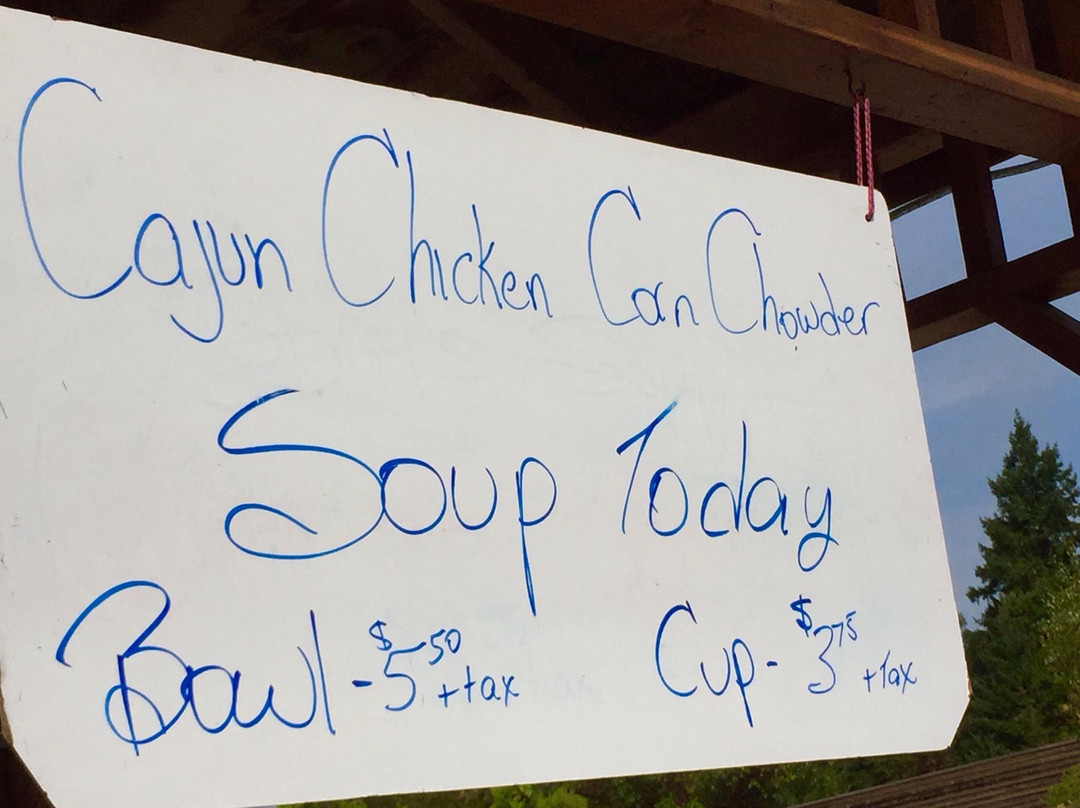 Cajun Chicken Corn Chowder
Soup Today
Bowl - $5.50 + tax Cup - $3.75 + Tax